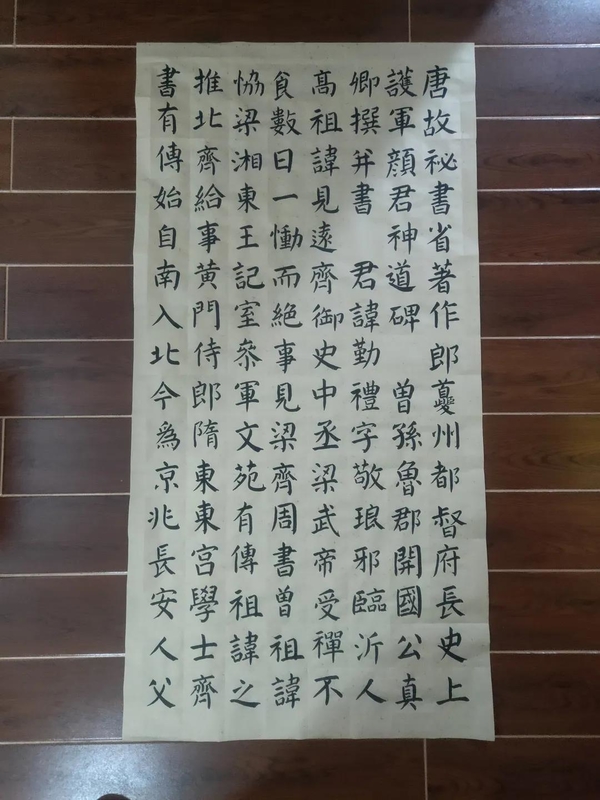 唐故祕書省著作郎夔州都督府長史上
護軍顏君神道碑 曾孫魯郡開國公真
卿撰并書 君諱勤禮字敬琅邪臨沂人
高祖諱見遠齊御史中丞梁武帝受禪不
食數日一慟而絕事見梁齊周書曾祖諱
恊梁湘東王記室叅軍文苑有傳祖諱之
推北齊給事黄門侍郎隋東東宮學士齊
書有傳始自南入北今爲京兆長安人父